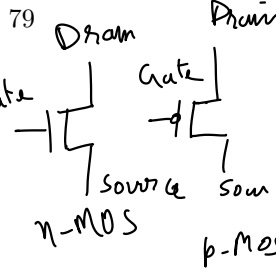 79
Drain
Drain
Gate
ate
Source
Sour
n-MOS
p-MOS